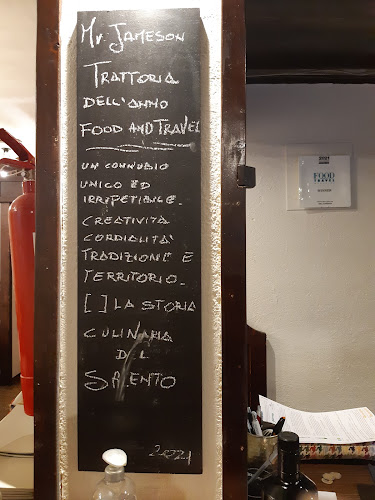 Mr Jameson
Trattoria
dell'anno
Food and Travel
un connubio
unico ed
irripetibile.
creatività
cordialità
tradizione e
territorio.
[ ] la storia
culinaria
del
Salento
2021
FOOD
TRAVEL